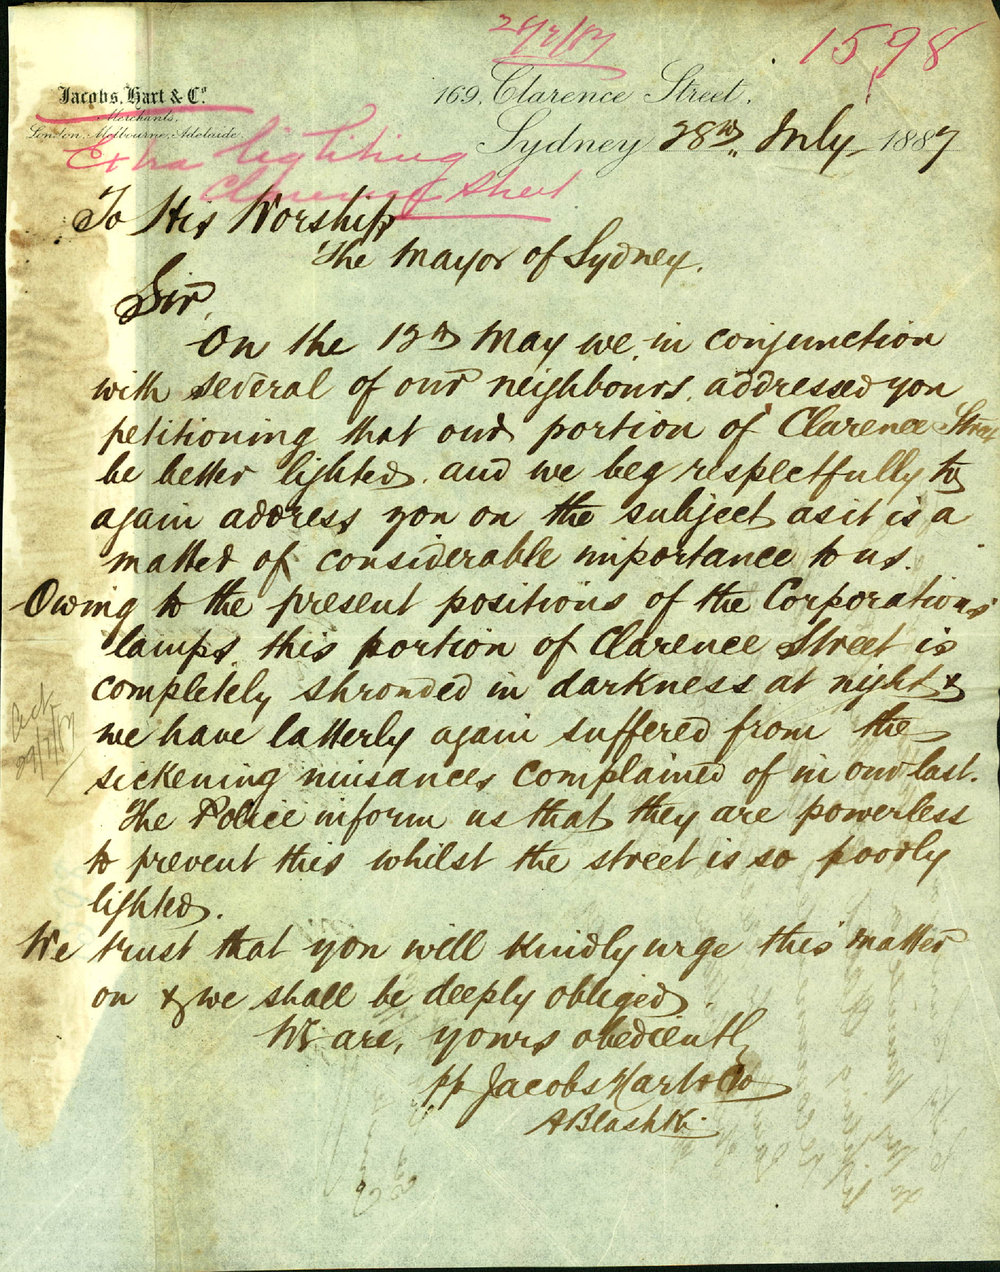 28/7/87
1598
Jacobs, Hart & Co.
Merchants,
London, Melbourne, Adelaide.
169, Clarence Street,
Sydney 28th July 1887
Extra lighting
Clarence Street
To His Worship
The Mayor of Sydney.
Sir,
On the 12th May we in conjunction
with several of our neighbours, addressed you
petitioning that our portion of Clarence Street
be better lighted, and we beg respectfully to
again address you on the subject as it is a
matter of considerable importance to us.
Owing to the present positions of the Corporations
lamps this portion of Clarence Street is
completely shrouded in darkness at night &
we have latterly again suffered from the
sickening nuisances complained of in our last.
The Police inform us that they are powerless
to prevent this whilst the street is so poorly
lighted.
We trust that you will kindly urge this matter
on & we shall be deeply obliged.
We are, yours obediently
pp Jacobs Hart & Co
A Blashki
Ack
29/7/87